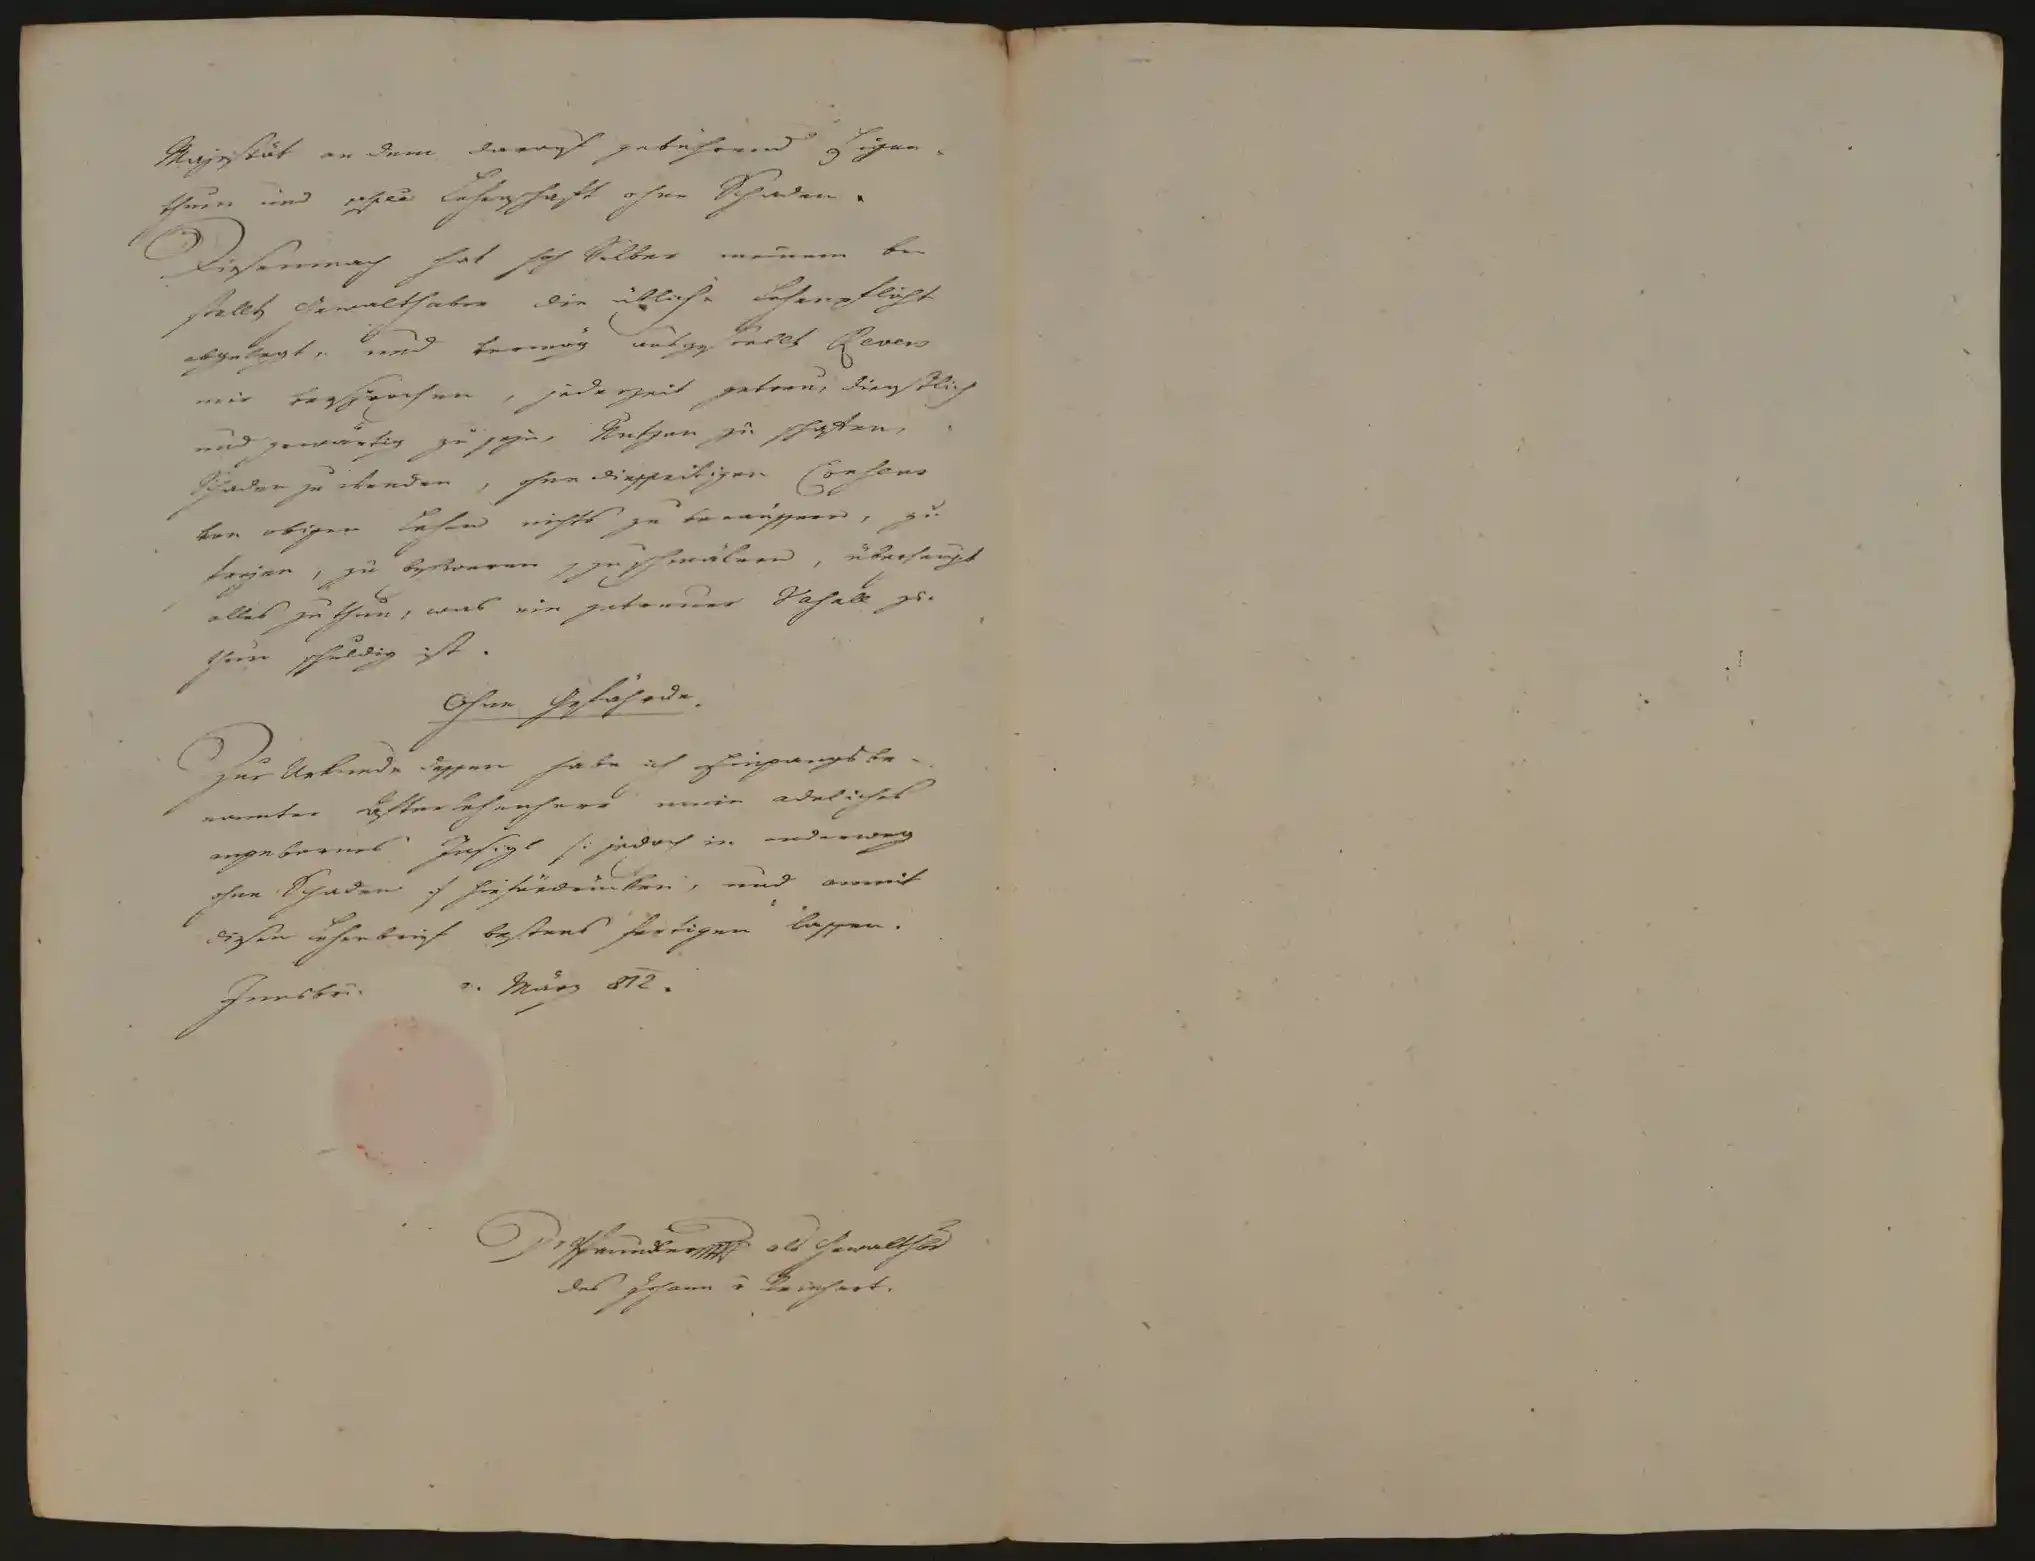 Majestät an dem darauf gebührend Eigen-
thum und Lehenschaft ohne Schaden.
Diesemnach hat sich Selber meinem be
stellt Gewalthaber die übliche Lehenpflicht
abgelegt, und vermög ausgestellt Revers
mir versprochen, jederzeit getreu, dienstlich
und gewärtig zu seyn, Nutzen zu schaffen,
Schaden zu wenden, ohne diesseitigen Consens
von obigen Lehen nichts zu veräussern, zu
 , zu beschweren, zu schmälern, überhaupt
alles zu thun, was ein getreuer Vasall zu
thun schuldig ist.
Ohne Gefährde.
Zur Urkunde dessen habe ich Eingangsbe-
nannter Afterlehenherr mein adeliches
angebornes Insigl /: jedoch in anderweg
ohne Schaden :/ hiefürdrücken, und anmit
diesen Lehenbrief bestens fertigen lassen.
März 812.
als Gewalthbr
des Johann v